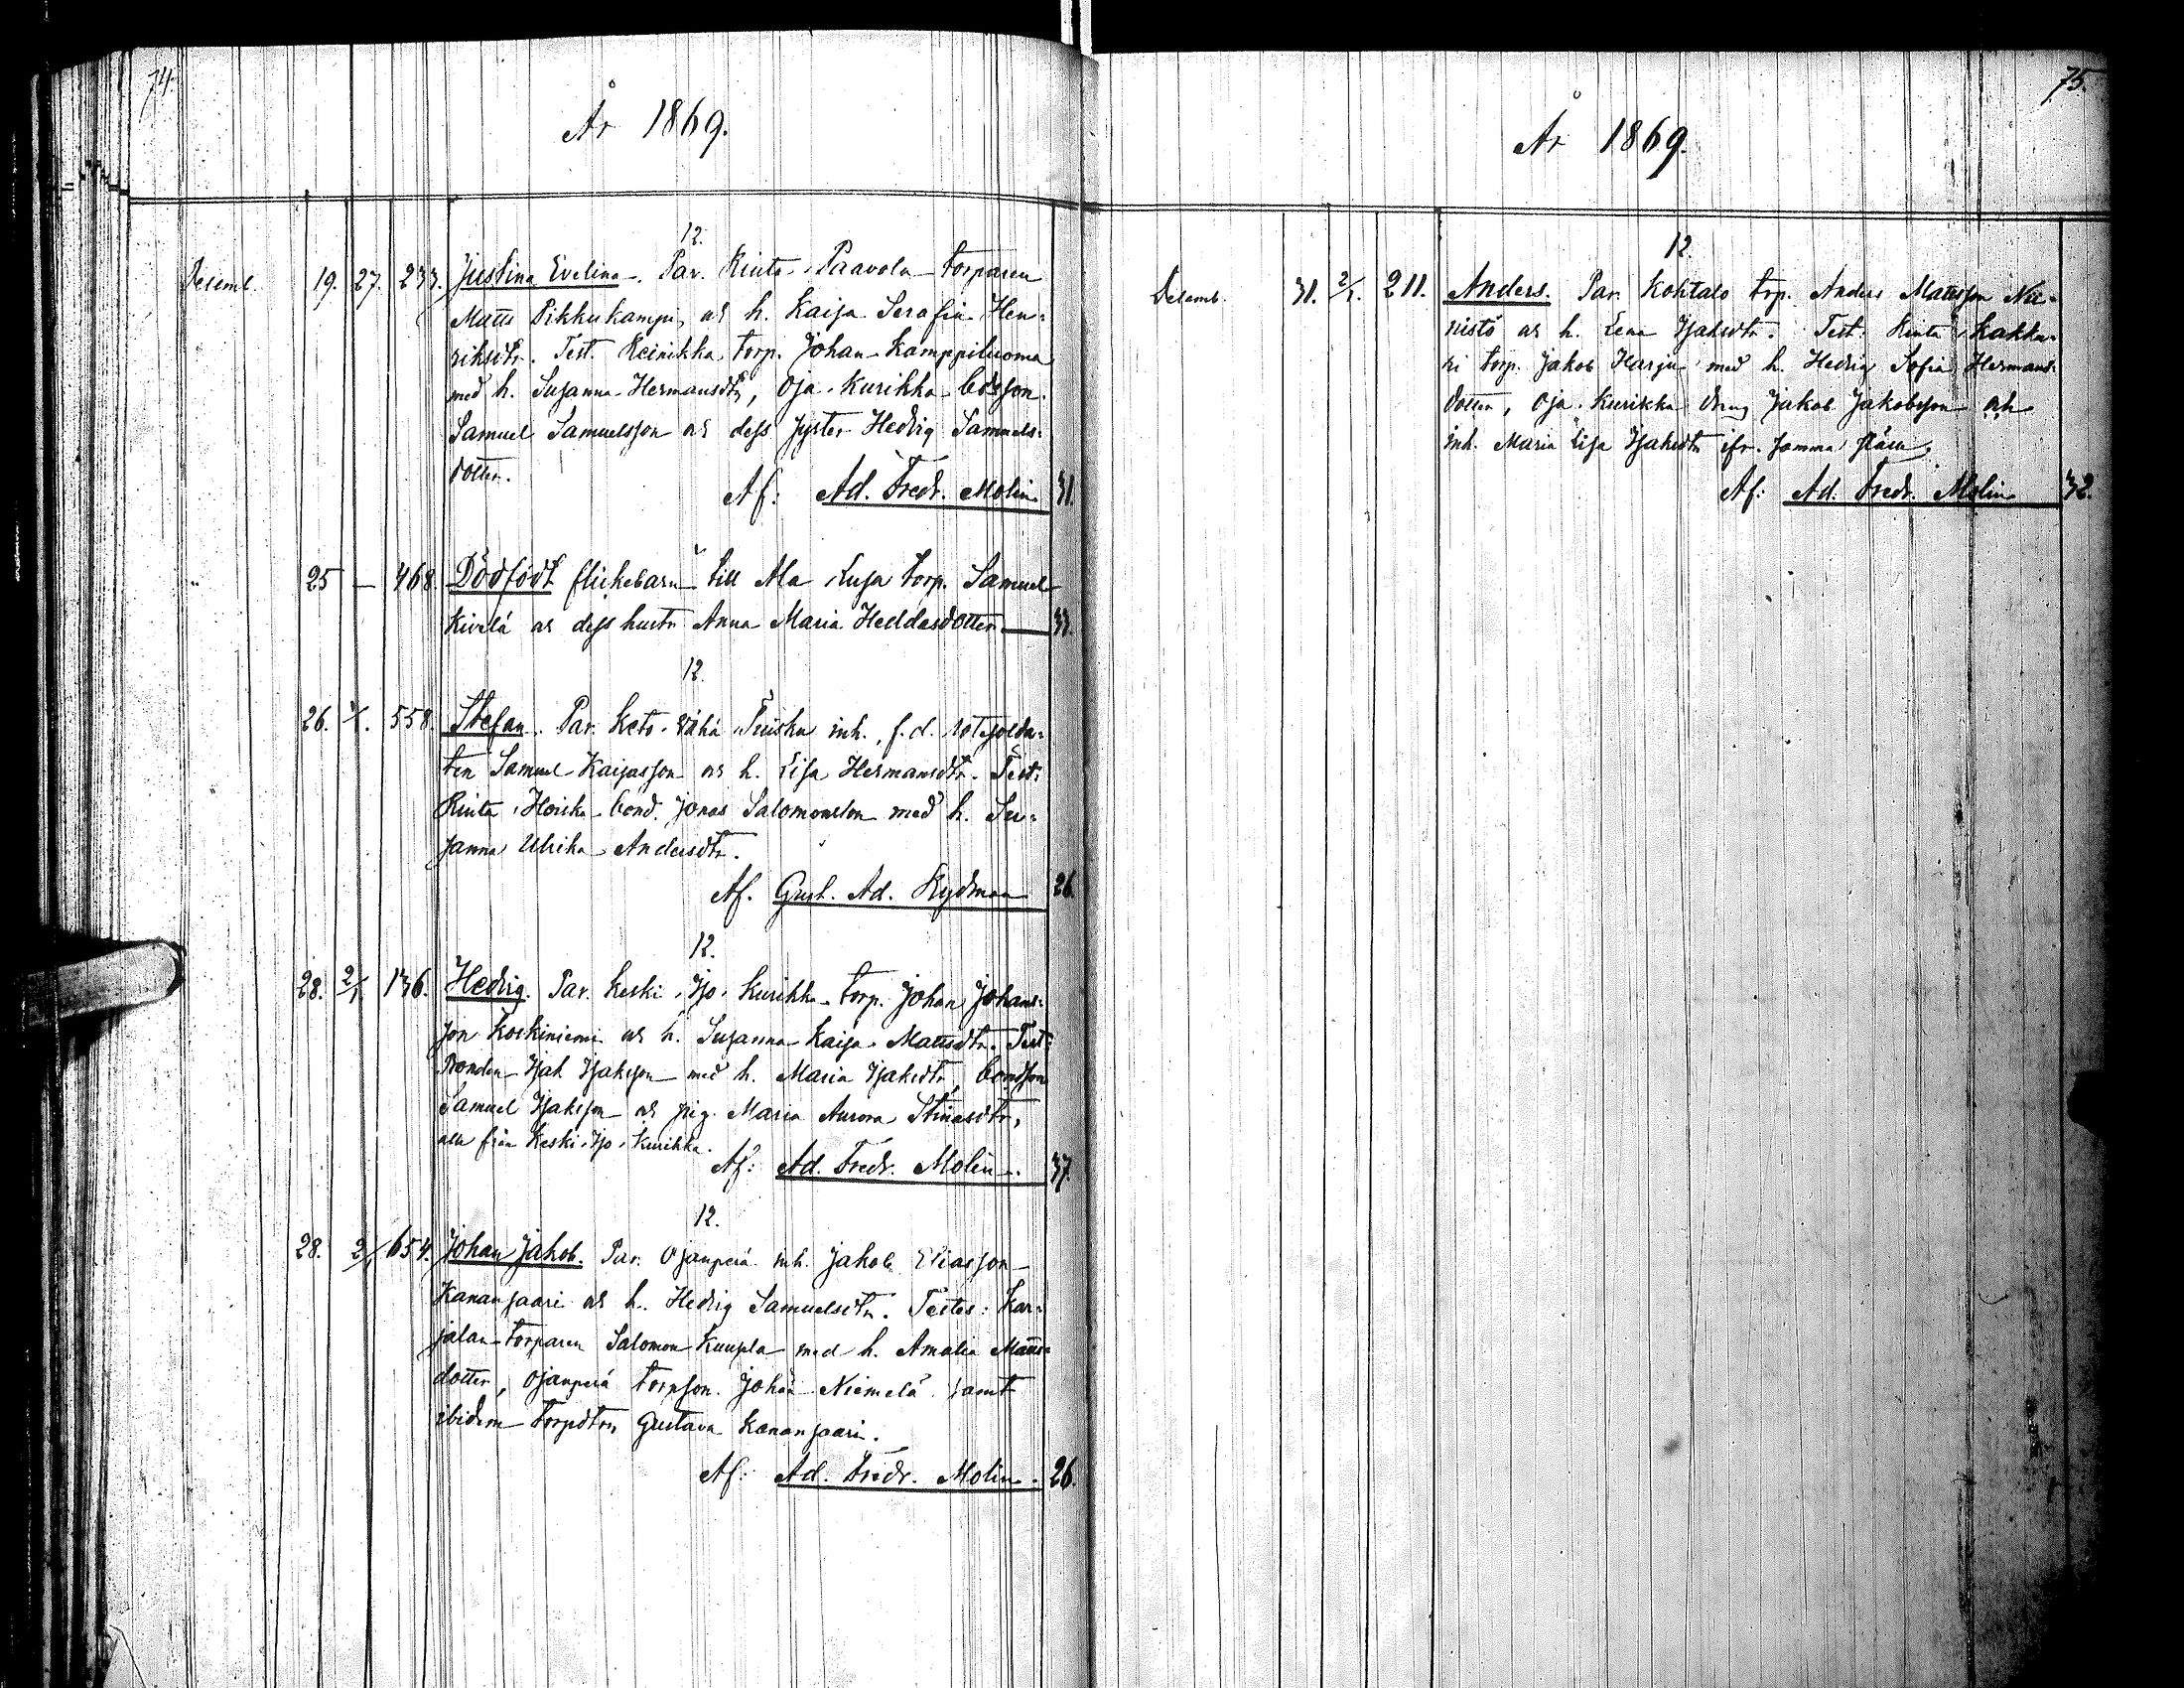 74.
År 1869.
12.
Decemb. 19. 27. 233. Justina Evelina. Par. Rinta Paavola torparen
Matts Pikkukampi, ock h. Kaisa Serafia Hen-
riksdtr. Test. Reinikka torp. Johan Kamppiluoma
med h. Susanna Hermansdtr, Oja-Kurikka bdsson.
Samuel Samuelsson ock dess syster Hedvig Samuels-
dotter.
Af: Ad. Fredr. Molin 31.
25 — 468. Dödfödt flickebarn till Ala Luja torp. Samuel
Kivelä ock dess hustr Anna Maria Heddasdotter — 33.
12.
26. 558. Stefan. Par. Keto-Vähä inh., f.d. rotesolda-
ten Samuel Kaisasson ock h. Lisa Hermansdtr. Test:
Rinta bond. Jonas Salomonsson med h. Su-
sanna Ulrika Andersdtr.
Af. Gust. Ad. Rydman 26.
12.
28. 2/1 136. Hedvig. Par. Keski-Iso-Kurikka torp. Johan Johans-
son Koskiniemi ock h. Susanna Kaisa Mattsdtr. Test:
Bonden Isak Isaksson med h. Maria Isaksdtr, bondson
Samuel Isaksson ock pig. Maria Aurora Stinasdtr,
alla från Keski-Iso-Kurikka.
Af: Ad. Fredr. Molin. 37.
12.
28. 2/1 654. Johan Jakob. Par. Ojanperä inh. Jakob Eliasson
Kanansaari ock h. Hedvig Samuelsdtr. Testes: Kar-
jalan torparen Salomon Kuupla med h. Amalia Matts-
dotter, Ojanperä torpson. Johan Niemelä samt
ibidem torpdtrn Gustava Kanansaari.
Af: Ad. Fredr. Molin. 26.
75.
År 1869.
12.
Decemb. 31. 2/1. 211. Anders. Par. Kohtalo torp. Anders Mattsson Nii-
nistö ock h. Lena Isaksdtr. Test: Rinta Kakku-
ri torp. Jakob Harju med h. Hedvig Sofia Hermans-
dotter, Oja-Kurikka dräng Jakob Jakobsson och
inh. Maria Lisa Isaksdtr ifr. samma ställe.
Af: Ad. Fredr. Molin 32.